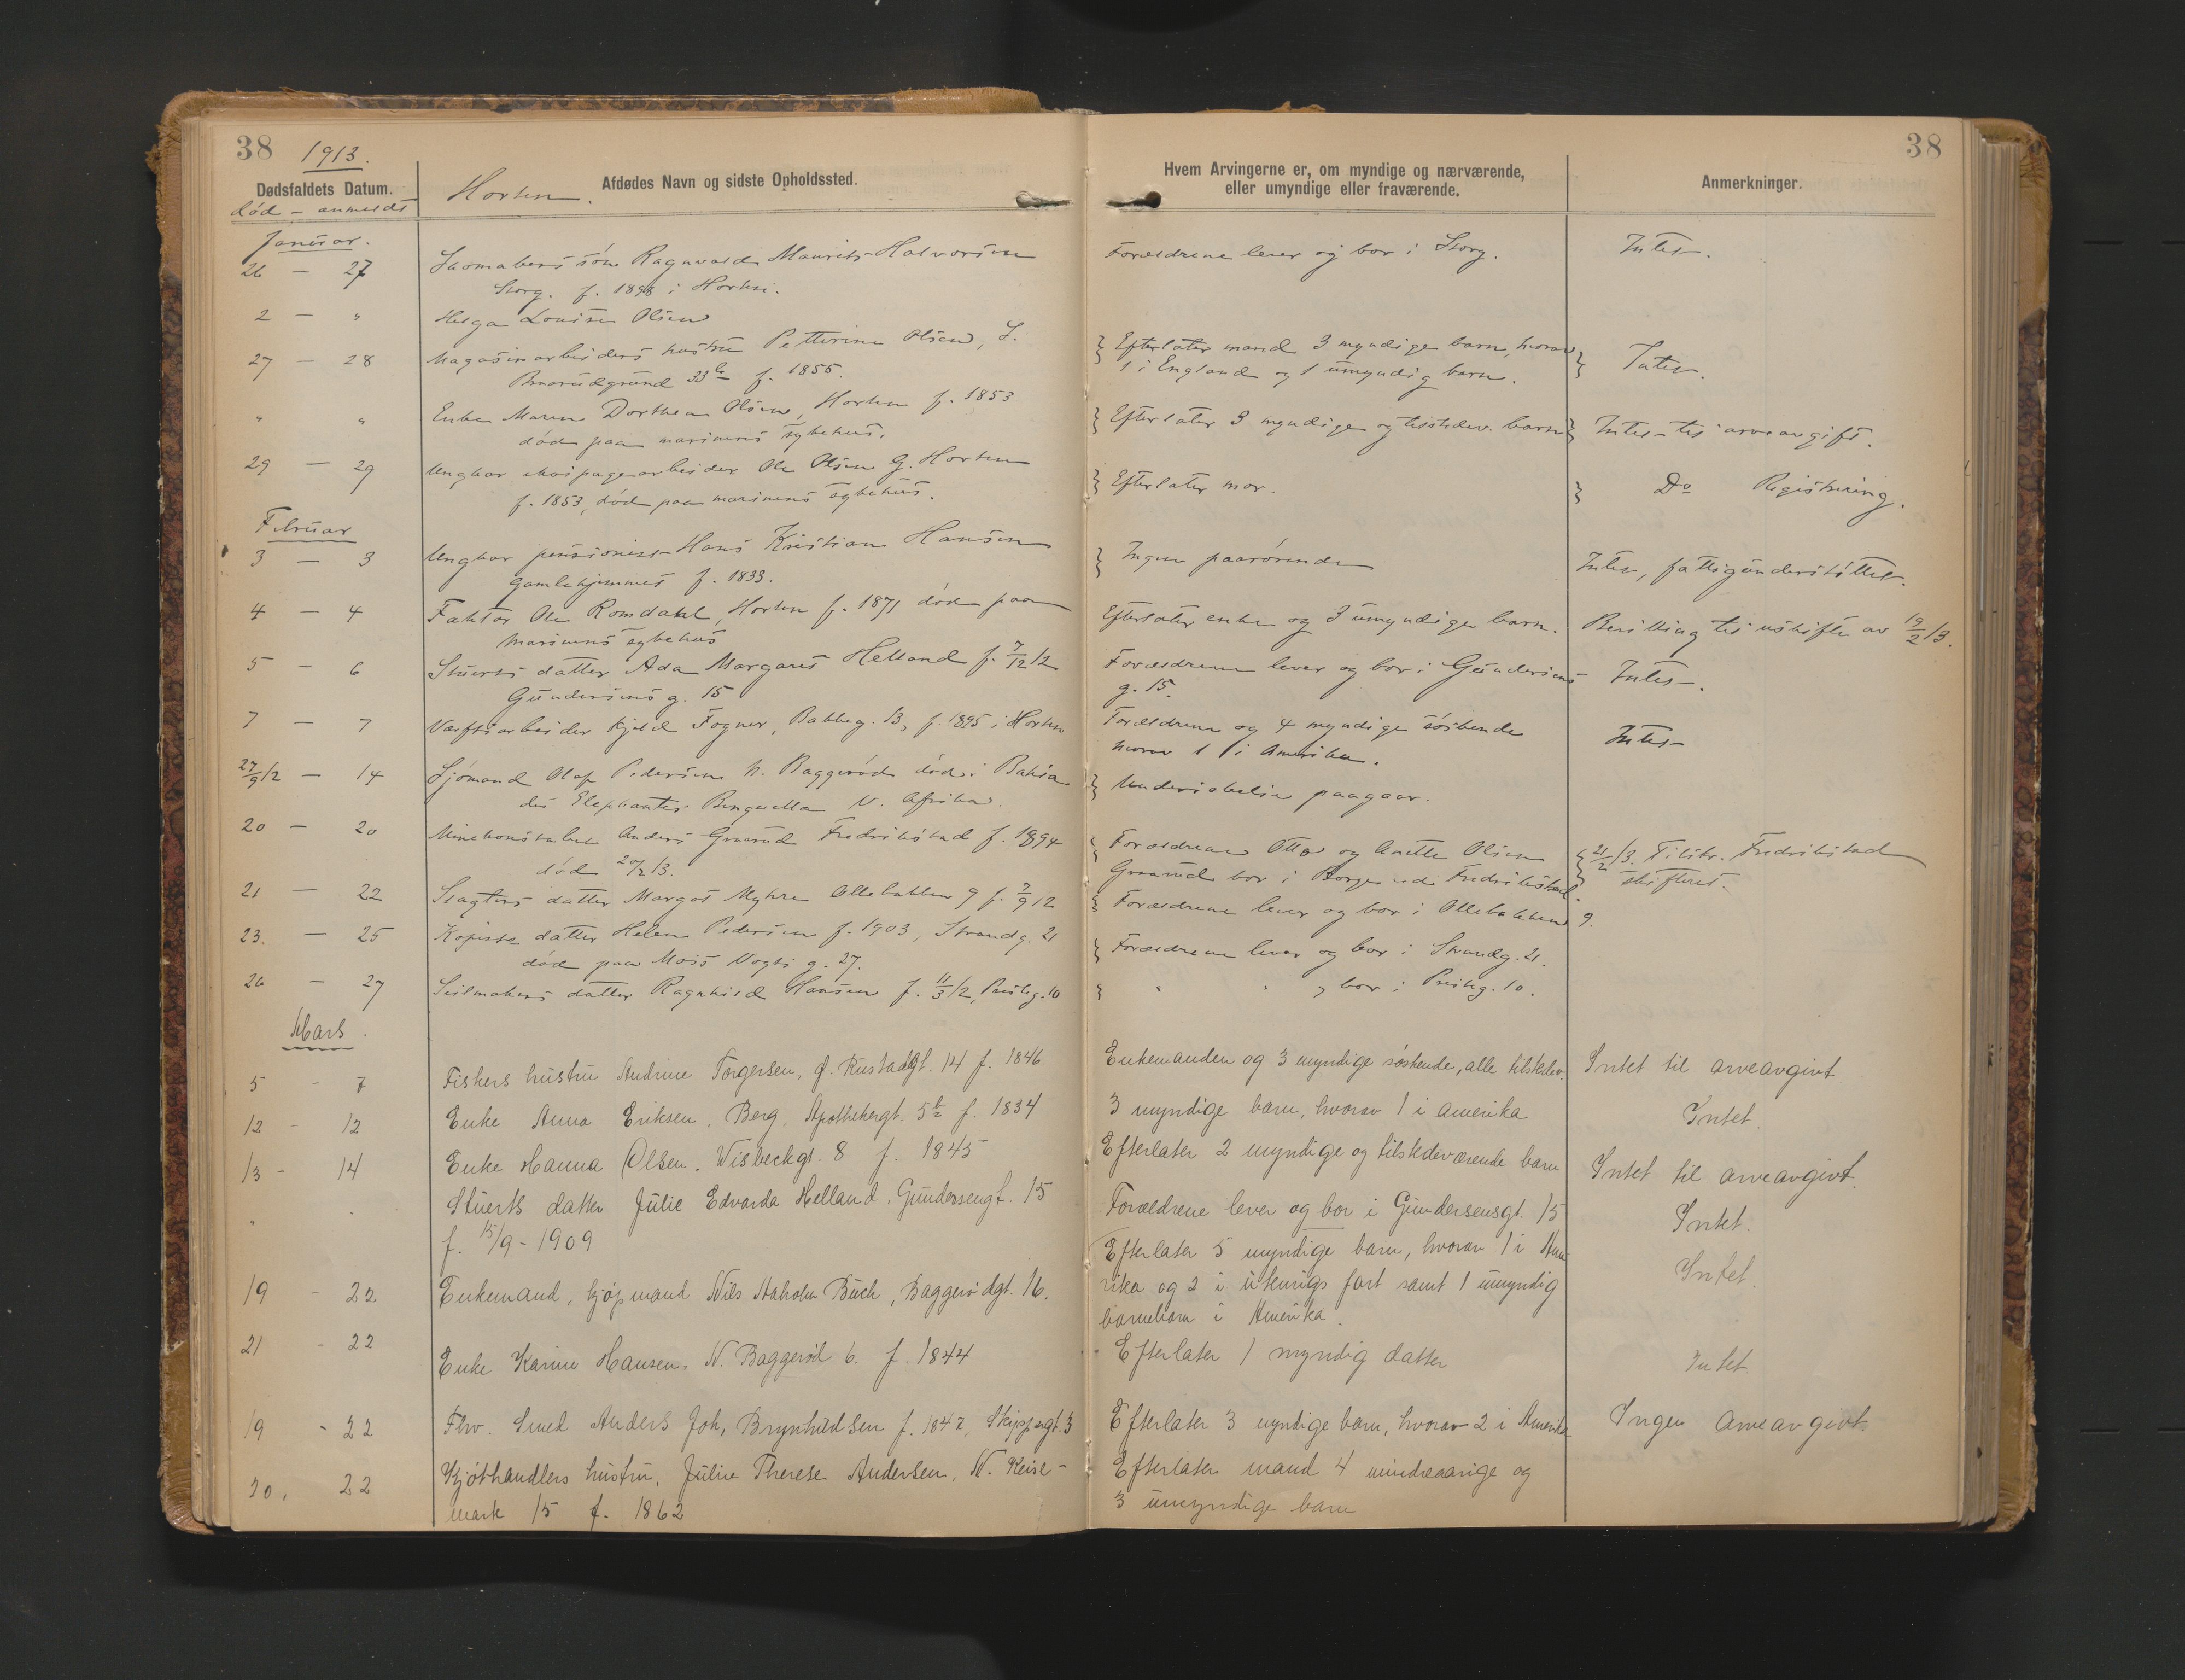 38
1913.
Dødsfaldets Datum.
død - anmeldt
Horten.
Afdødes Navn og sidste Opholdssted.
Hvem Arvingerne er, om myndige og nærværende,
eller umyndige eller fraværende.
Anmerkninger.
38
Januar.
26 — 27 Skomakers søn Ragnvald Maurits Halvorsen Forældrene lever og bor i Storg. Intet.
Storg. f. 1898 i Horten.
2 — " Helga Lovise Olsen
27 — 28 Magasinarbeiders hustru Petterine Olsen, S. Efterlater mand 3 myndige barn, hvorav Intet.
Braarudgrund 33 b f. 1855. 1 i England og 1 umyndig barn.
" " Enke Maren Dorthea Olsen, Horten f. 1853 Efterlater 3 myndige og tilstedev. barn Intet til arveavgift.
død paa marinens sykehus.
29 — 29 Ungkar ekvipagearbeider Ole Olsen G. Horten Efterlater mor. Do Registrering.
f. 1853, død paa marinens sykehus.
Februar
3 — 3 Ungkar pensionist Hans Kristian Hansen Ingen paarørende Intet, fattigunderstøttet.
Gamlehjemmet f. 1833.
4 — 4 Faktor Ole Romdahl, Horten f. 1871 død paa Efterlater enke og 3 umyndige barn. Bevilling til uskifte av 19/2 13.
marinens sykehus
5 — 6 Stuerts datter Ada Margaret Helland f. 7/12 12 Forældrene lever og bor i Gundersens Intet.
Gundersens g. 15 g. 15.
7 — 7 Værftsarbeider Kjeld Fogner, Bakkeg. 13, f. 1895 i Horten Forældrene og 4 myndige søskende Intet
hvorav 1 i Amerika.
27/9 12 — 14 Sjømand Olaf Pedersen N. Baggerød død i Bahia Undersøkelse paagaar.
des Elephantes Benguella V. Afrika.
20 — 20 Minekonstabel Anders Graarud Fredrikstad f. 1894 Forældrene Otto og Anette Olsen 21/2 13. Tilskr. Fredrikstad
død 20/2 13. Graarud bor i Borge ved Fredrikstad. skifteret.
21 — 22 Slagters datter Margot Myhre Ollebakken 9 f. 7/9 12 Forældrene lever og bor i Ollebakken 9.
23. — 25 Kopists datter Helene Pedersen f. 1903, Strandg. 21 Forældrene lever og bor i Strandg. 21.
død paa Mois Vogts g. 27.
26 — 27 Seilmakers datter Ragnhild Hansen f. 11/3 12, Presteg. 10 " " " bor i Presteg. 10.
Mars.
5 - 7 Fiskers hustru Andrine Torgersen, f. Rustadgt. 14 f. 1846 Enkemanden og 3 myndige søskende, alle tilstedev. Intet til arveavgivt
12 - 12 Enke Anna Eriksen, Berg, Apothekergt. 5 b f. 1834 3 myndige barn, hvorav 1 i Amerika Intet.
13 - 14 Enke Hanna Olsen, Wisbeckgt. 8 f. 1845 Efterlater 2 myndige og tilstedeværende barn Intet til arveavgivt.
" . Stuerts datter Julie Edvarda Helland, Gundersengt. 15 Forældrene lever og bor i Gundersensgt. 15 Intet.
f. 15/9 - 1909
19 - 22 Enkemand, kjøpmand Nils Aaholm Buch, Baggerødgt. 16. Efterlater 5 myndige barn, hvorav 1 i Ame- Intet.
rika og 2 i utenrigs fart samt 1 umyndig
barnebarn i Amerika.
21 - 22 Enke Karine Hansen, N. Baggerød 6. f. 1844 Efterlater 1 myndig datter Intet
19 - 22 Fhv. Smed Anders Joh. Brynhildsen f. 1847, Skippergt. 3 Efterlater 3 myndige barn, hvorav 2 i Amerika Ingen arveavgivt.
20. 22 Kjøthandlers hustru, Julie Therese Andersen, N. Keise- Efterlater mand 4 mindreaarige og
mark 15 f. 1862 3 umyndige barn